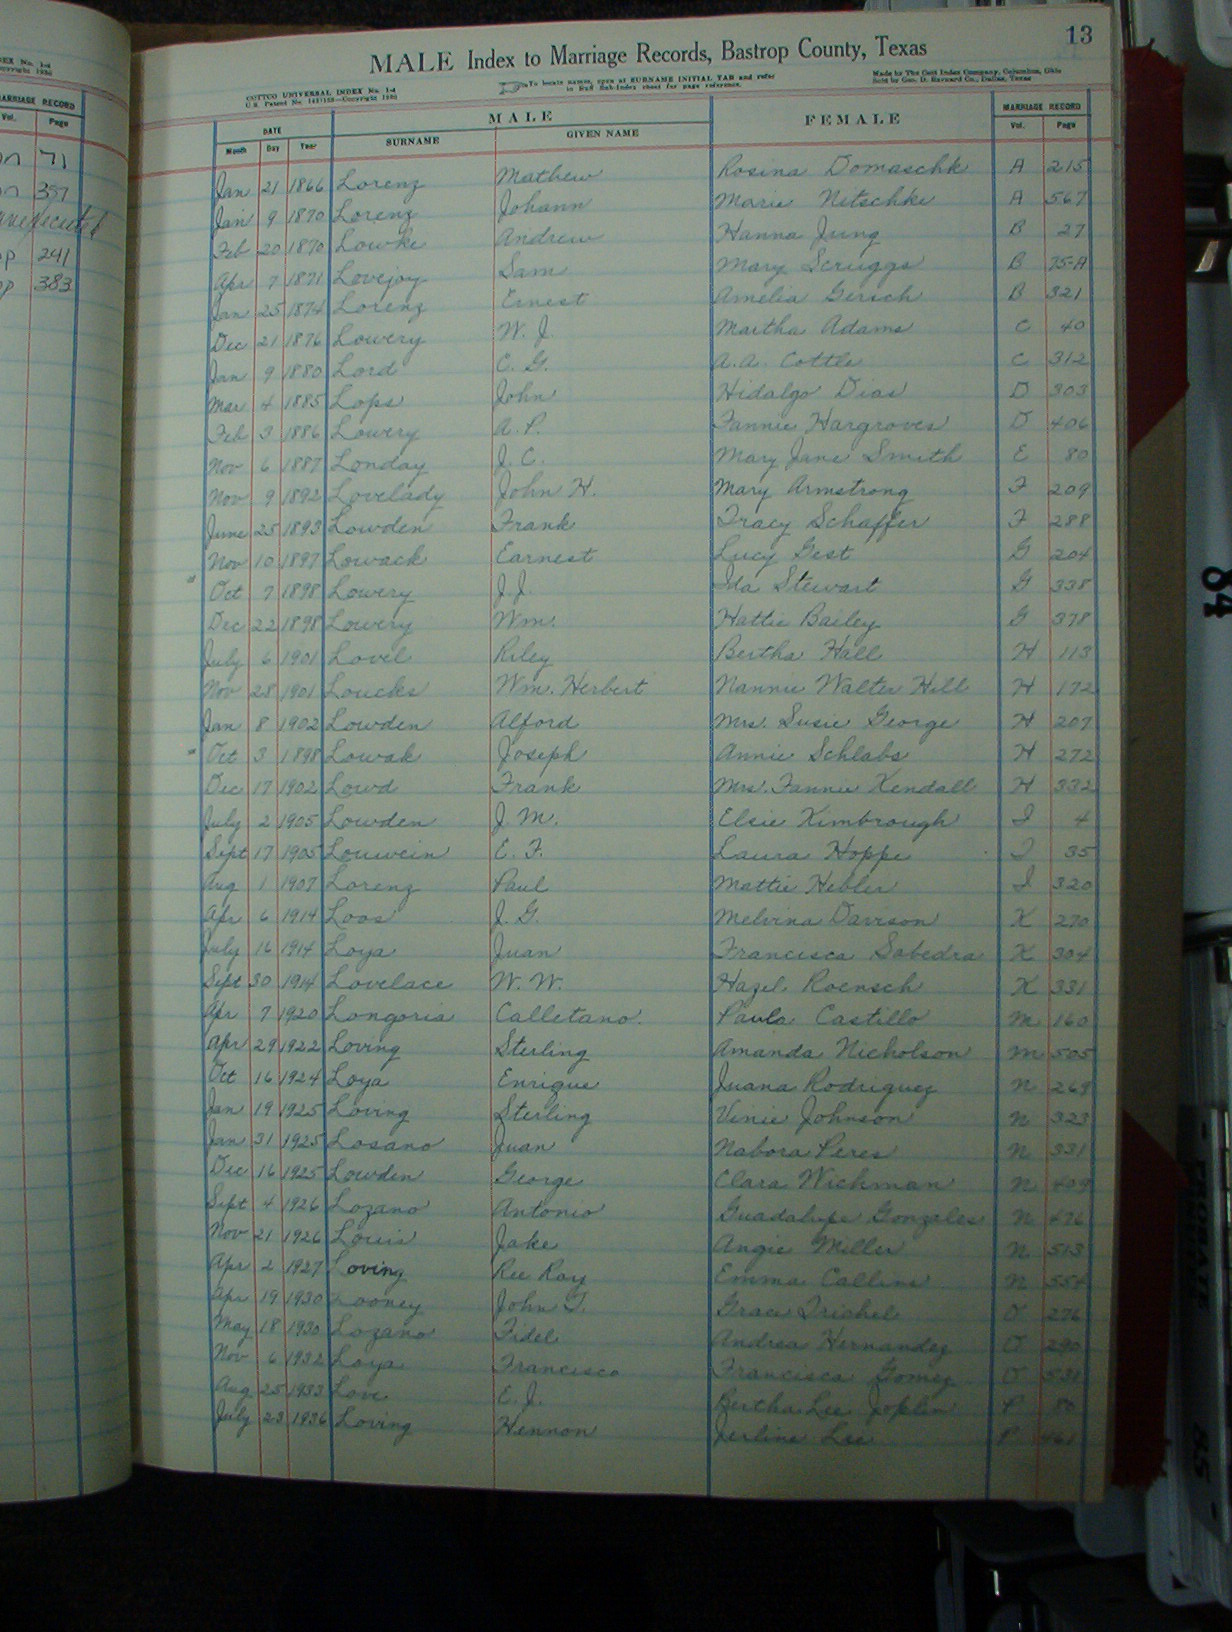 13
MALE Index to Marriage Records, Bastrop County, Texas
COTTCO UNIVERSAL INDEX No. 1-4
To locate names, open at SURNAME INITIAL TAB and refer
Made by The Cott Index Company, Columbus, Ohio
MARRIAGE RECORD
Vol. Page
71
397
unexecuted
241
383
DATE MALE FEMALE MARRIAGE RECORD
Month Day Year SURNAME GIVEN NAME Vol. Page
Jan 21 1866 Lorenz Mathew Rosina Domaschk A 215
Jan 9 1870 Lorenz Johann Marie Nitschke A 567
Feb 20 1870 Lowke Andrew Hanna Jung B 27
Apr 7 1871 Lovejoy Sam Mary Scruggs B 75-A
Jan 25 1874 Lorenz Ernest Amelia Gersch B 321
Dec 21 1876 Lowery W. J. Martha Adams C 40
Jan 9 1880 Lord C. G. A. A. Cottle C 312
Mar 4 1885 Lops John Hidalgo Dias D 303
Feb 3 1886 Lowery A. P. Fannie Hargroves D 406
Nov 6 1887 Londay J. C. Mary Jane Smith E 80
Nov 9 1892 Lovelady John H. Mary Armstrong F 209
June 25 1893 Lowden Frank Tracy Schaffer F 288
Nov 10 1897 Lowack Earnest Lucy Gest G 204
Oct 7 1898 Lowery J. J. Ida Stewart G 338
Dec 22 1898 Lowery Wm. Hattie Bailey G 378
July 6 1901 Lovel Riley Bertha Hall H 113
Nov 28 1901 Loucks Wm. Herbert Nannie Walter Hill H 172
Jan 8 1902 Lowden Alford Mrs. Susie George H 207
Oct 3 1898 Lowak Joseph Annie Schlabs H 272
Dec 17 1902 Lowd Frank Mrs. Fannie Kendall H 332
July 2 1905 Lowden J. M. Elsie Kimbrough I 4
Sept 17 1905 Louwein E. F. Laura Hoppe I 35
Aug 1 1907 Lorenz Paul Mattie Hebler I 320
Apr 6 1914 Loos J. G. Melvina Davison K 270
July 16 1914 Loya Juan Francisca Sabedra K 304
Sept 30 1914 Lovelace W. W. Hazel Roensch K 331
Apr 7 1920 Longoria Calletano. Paula Castillo M 160
Apr 29 1922 Loving Sterling Amanda Nicholson M 505
Oct 16 1924 Loya Enrique Juana Rodriguez N 269
Jan 19 1925 Loving Sterling Vinie Johnson N 323
Jan 31 1925 Losano Juan Nabora Peres N 331
Dec 16 1925 Lowden George Clara Wichman N 409
Sept 4 1926 Lozano Antonio Guadalupe Gonzales N 476
Nov 21 1926 Louis Jake Angie Miller N 513
Apr 2 1927 Loving Ree Roy Emma Callins N 554
Apr 19 1930 Looney John T. Grace Trichel O 276
May 18 1930 Lozano Fidel Andrea Hernandez O 290
Nov 6 1932 Loya Francisco Francisca Gomez O
Aug 25 1933 Love E. J. Bertha Lee Joplin P 80
July 23 1936 Loving Hennon Jerline Lee P 461
84
PROBATE
85